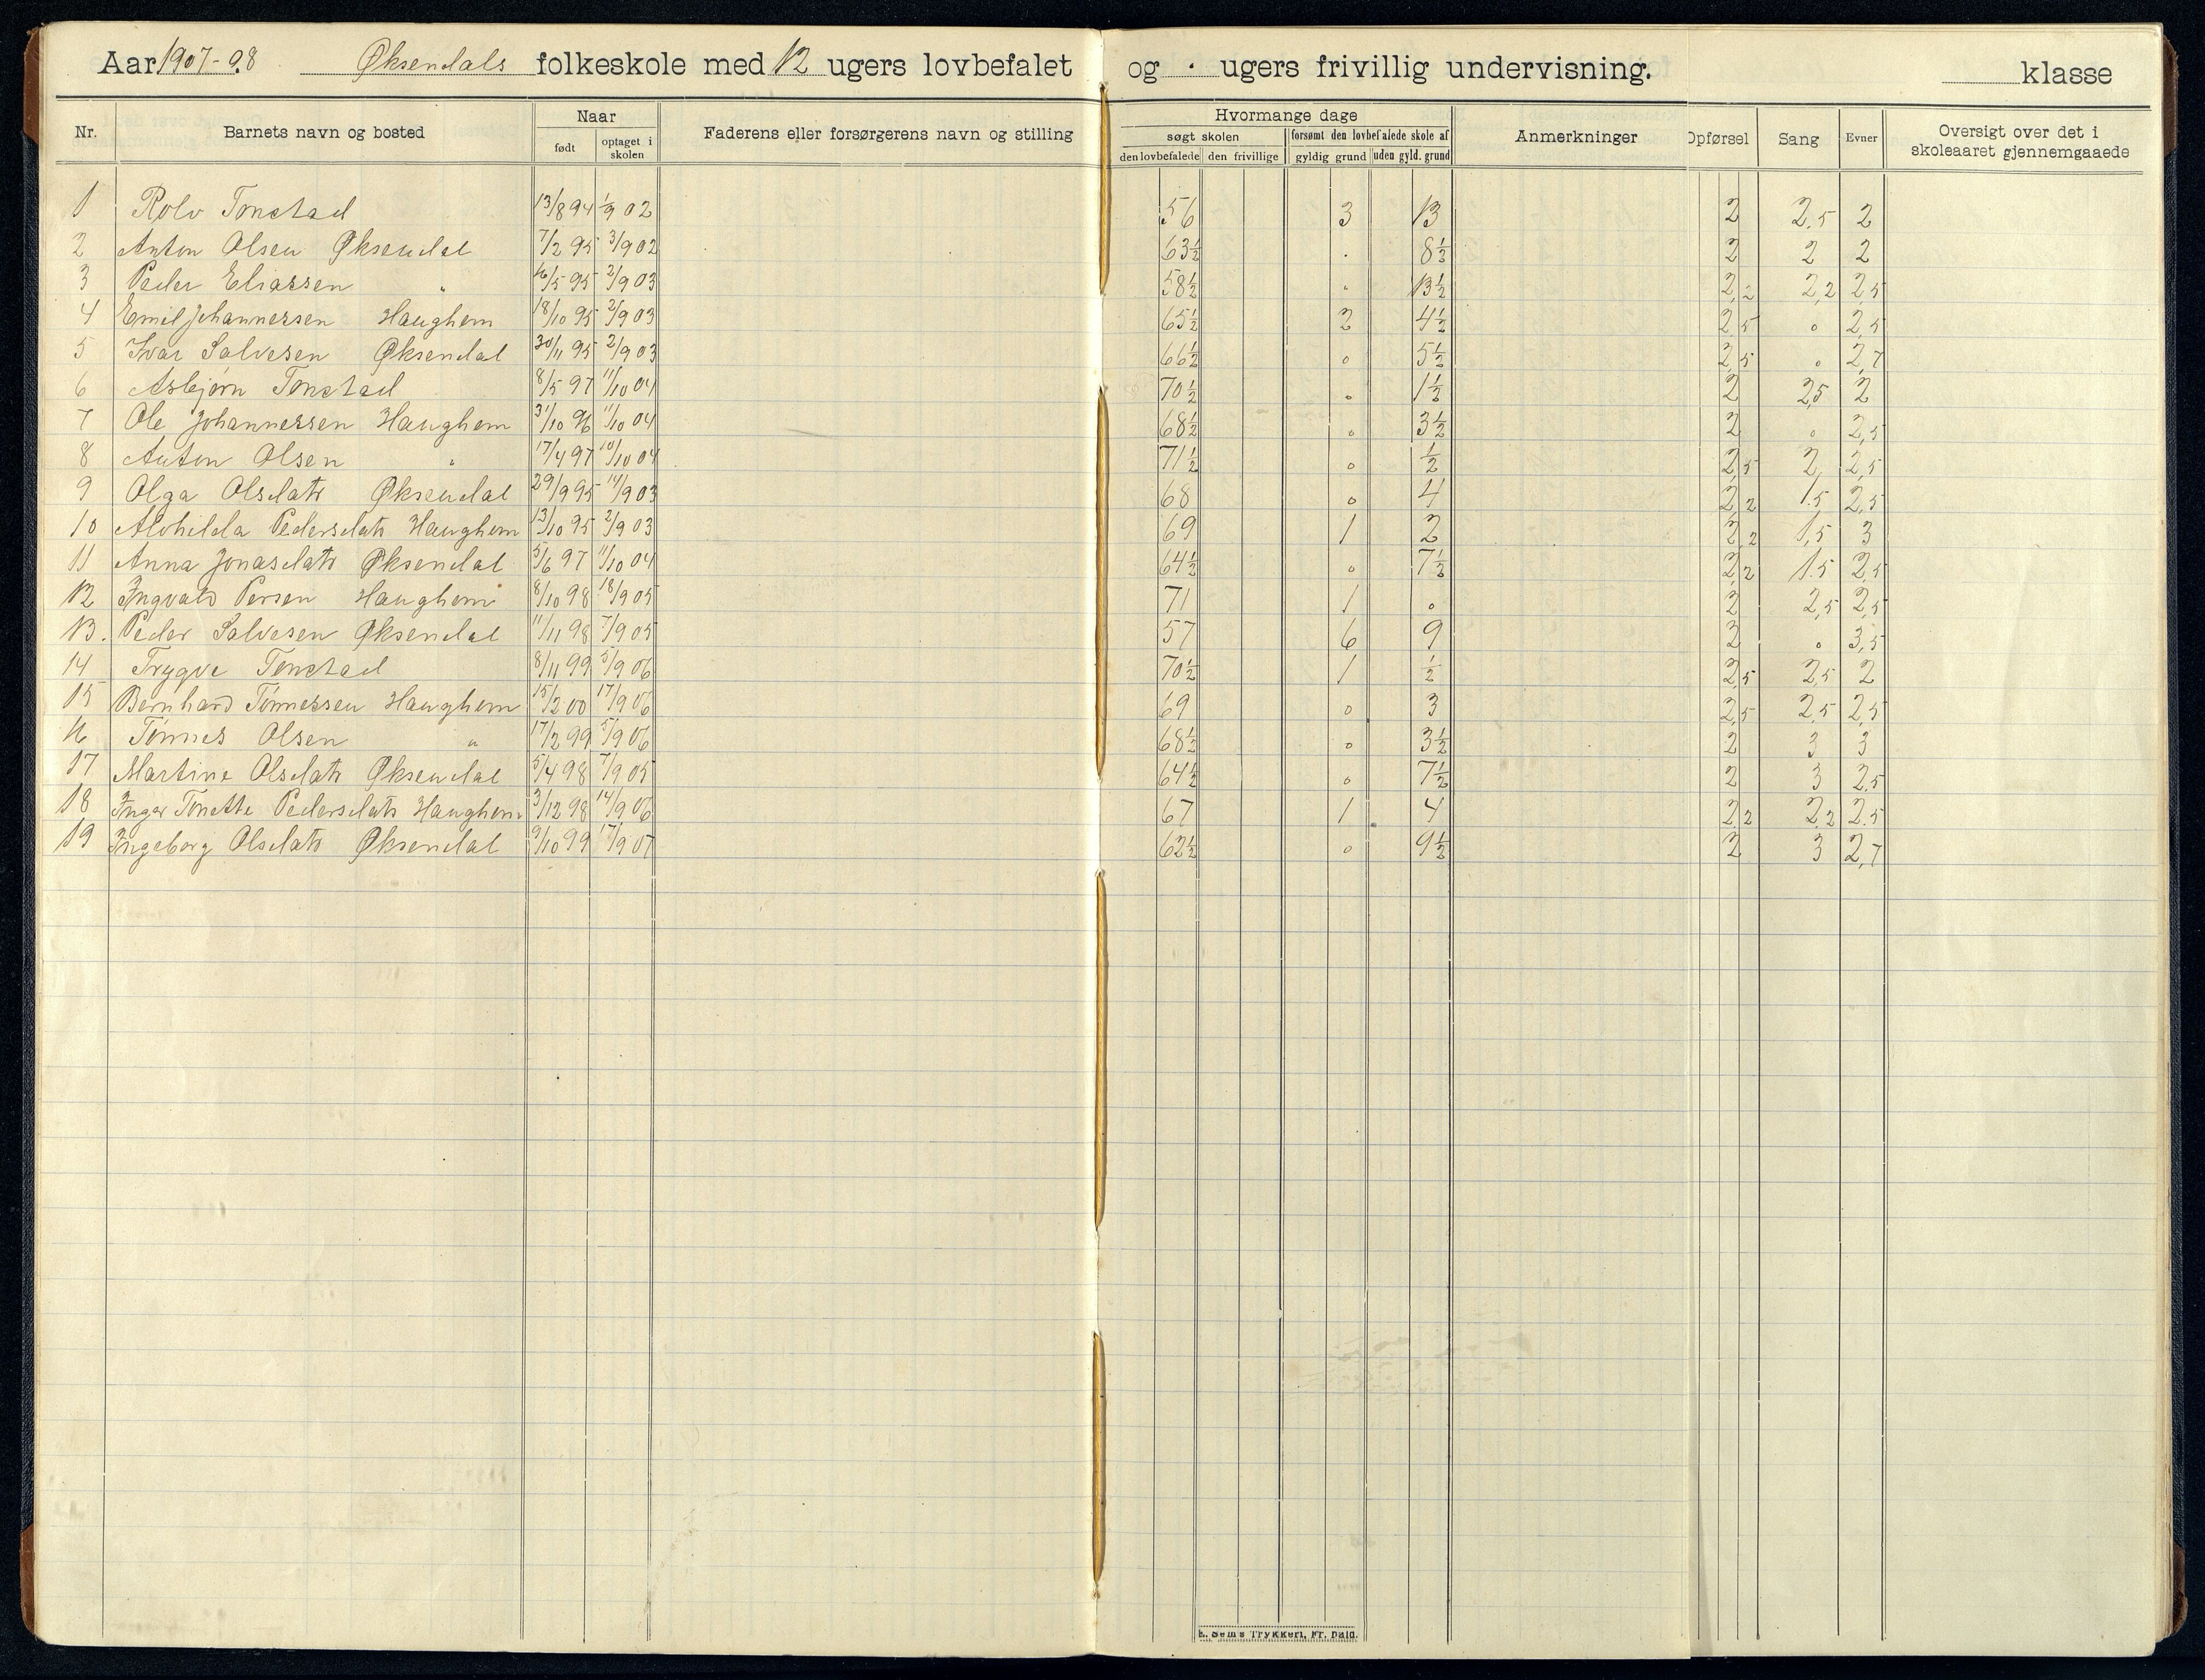 Aar 1907-08 Øksendals folkeskole med 12 ugers lovbefalet og · ugers frivillig undervisning. klasse
Nr. Barnets navn og bosted Naar Faderens eller forsørgerens navn og stilling Hvormange dage Anmerkninger Opførsel Sang Evner Oversigt over det i skoleaaret gjennemgaaede
født optaget i skolen søgt skolen forsømt den lovbefalede skole af
den lovbefalede den frivillige gyldig grund uden gyld. grund
1 Rolv Tonstad 13/8 94 1/9 02 56 3 13 2 2,5 2
2 Anton Olsen Øksendal 7/2 95 3/9 02 63½ . 8½ 2 2 2
3 Peder Eliassen " 16/5 95 2/9 03 58½ . 13½ 2,2 2,2 2,5
4 Emil Johannessen Haughom 18/10 95 2/9 03 65½ 2 4½ 2,5 o 2,5
5 Ivar Salvesen Øksendal 30/11 95 2/9 03 66½ o 5½ 2,5 o 2,7
6 Asbjørn Tonstad 8/5 97 11/10 04 70½ o 1½ 2 2,5 2
7 Ole Johannessen Haughom 31/10 96 11/10 04 68½ o 3½ 2 o 2,5
8 Anton Olsen " 17/4 97 10/10 04 71½ o ½ 2,5 2 2,5
9 Olga Olsdatr Øksendal 29/9 95 14/9 03 68 o 4 2,2 1.5 2,5
10 Alvhilda Pedersdatr Haughom 13/10 95 2/9 03 69 1 2 2,2 1,5 3
11 Anna Jonasdatr Øksendal 5/6 97 11/10 04 64½ o 7½ 2,2 1.5 2,5
12 Ingvald Persen Haughom 8/10 98 18/9 05 71 1 o 2 2,5 2,5
13. Peder Salvesen Øksendal 11/11 98 7/9 05 57 6 9 2 o 3,5
14 Trygve Tonstad 8/11 99 5/9 06 70½ 1 ½ 2,5 2,5 2
15 Bernhard Tønnessen Haughom 15/2 00 17/9 06 69 o 3 2,5 2.5 2,5
16 Tønnes Olsen " 17/2 99 5/9 06 68½ o 3½ 2 3 3
17 Martine Olsdatr Øksendal 5/4 98 7/9 05 64½ o 7½ 2 3 2.5
18 Inger Tonette Pedersdatr Haughom 3/12 98 14/9 06 67 1 4 2,2 2,2 2.5
19 Ingeborg Olsdatr Øksendal 9/10 99 17/9 07 62½ o 9½ 2 3 2,7
E. Sems Trykkeri, Fr. hald.